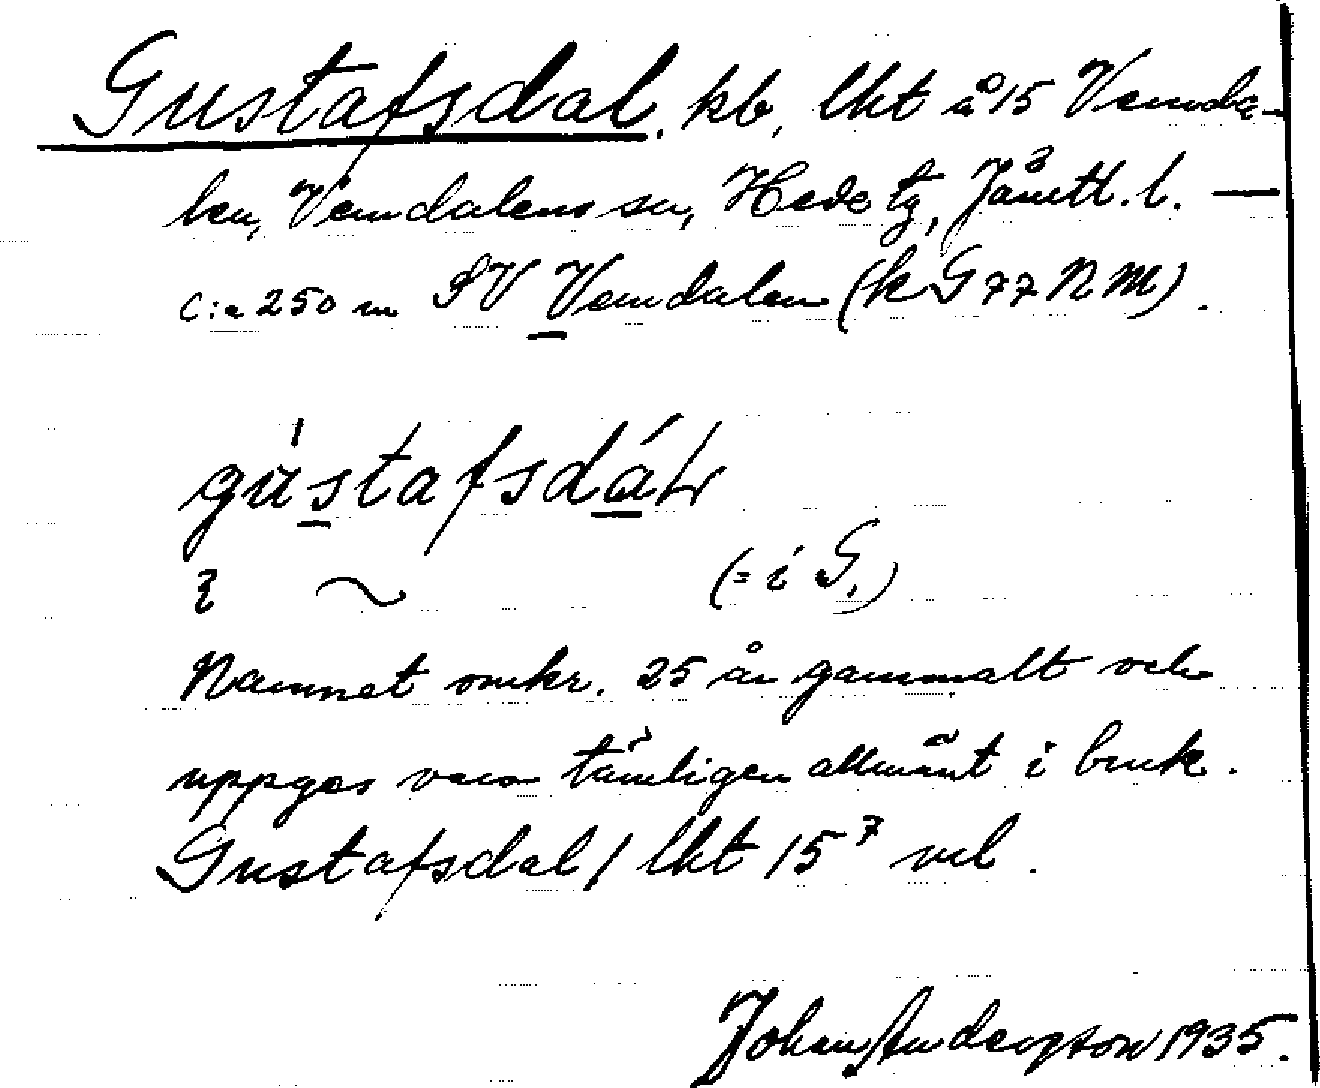 Gustafsdal. kb, lht å 15 Vemda-
len, Vemdalens sn, Hede tg, Jämtl. l. —
c:a 250 m SV Vemdalen (k G 77 N M).
gustafsdaɫ
(= i G.)
Namnet omkr. 25 år gammalt och
uppges vara tämligen allmänt i bruk.
Gustafsdal / lht 15⁷ vel.
Johan Anderzson 1935.